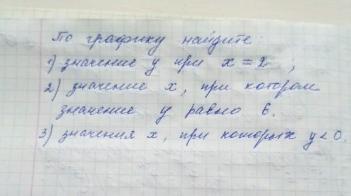 По графику найдите
1) значение y при x = 2 ,
2) значение x, при котором
значение y равно 6.
3) значения x, при которых y < 0.